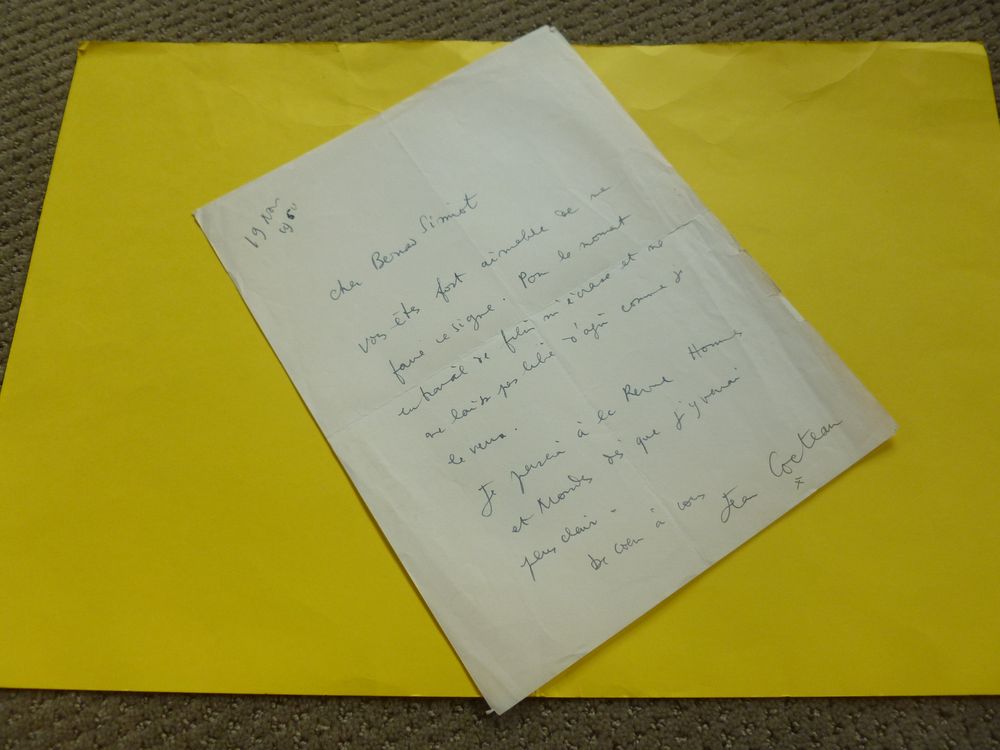 19 Nov
1950
cher Bernard Simiot
vous êtes fort aimable de me
faire ce signe. Pour le moment
un travail de film m'écrase et ne
me laisse pas libre d'agir comme je
le veux.
Je penserai à la Revue Hommes
et Mondes dès que j'y verrai
plus clair.
De coeur à vous
Jean Cocteau